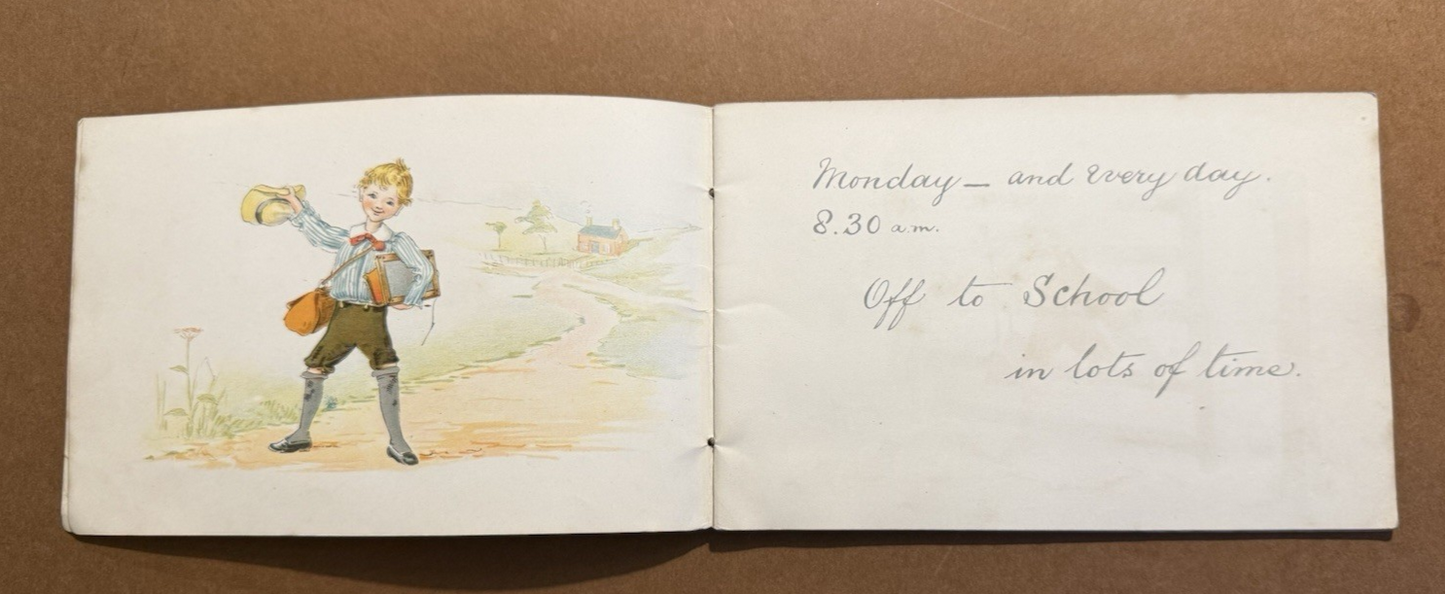 Monday – and every day.
8.30 a.m.
Off to School
in lots of time.